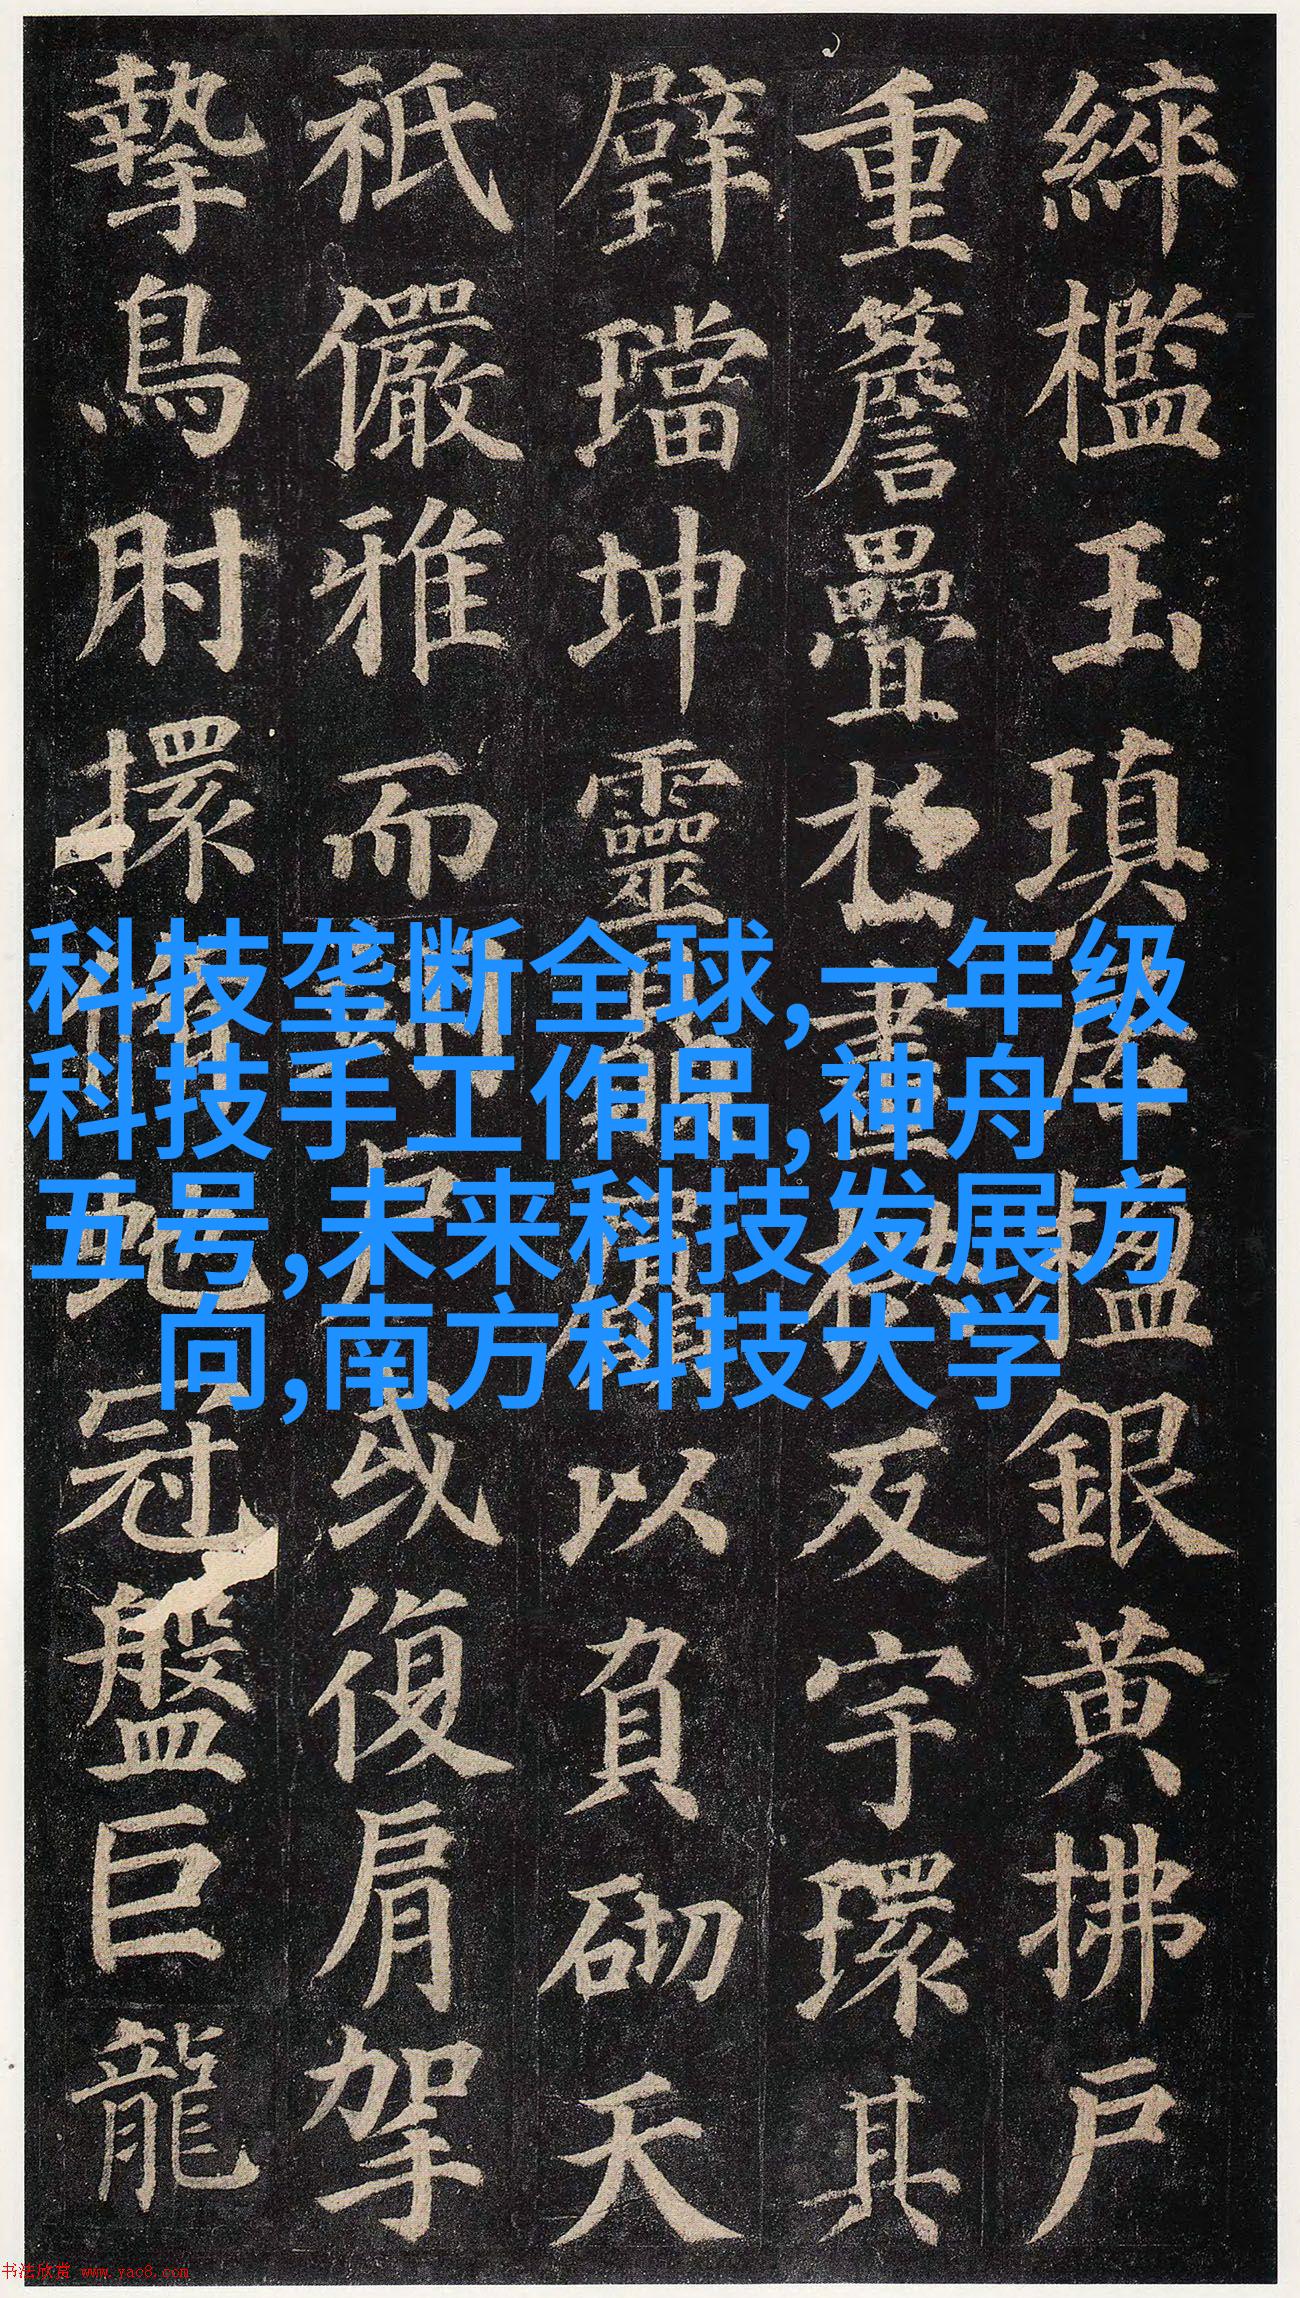 綷檻玉瑱居楹銀黄拂戶
重簷疊於畫栱反宇環其
璧璫坤靈贔屭以負砌天
祇儼雅而翊戶或復肩挐
摯鳥肘擐脩蛇冠盤巨龍
科技垄断全球,一年级
科技手工作品,神舟十
五号,未来科技发展方
向,南方科技大学
书法欣赏 www.yac8.com